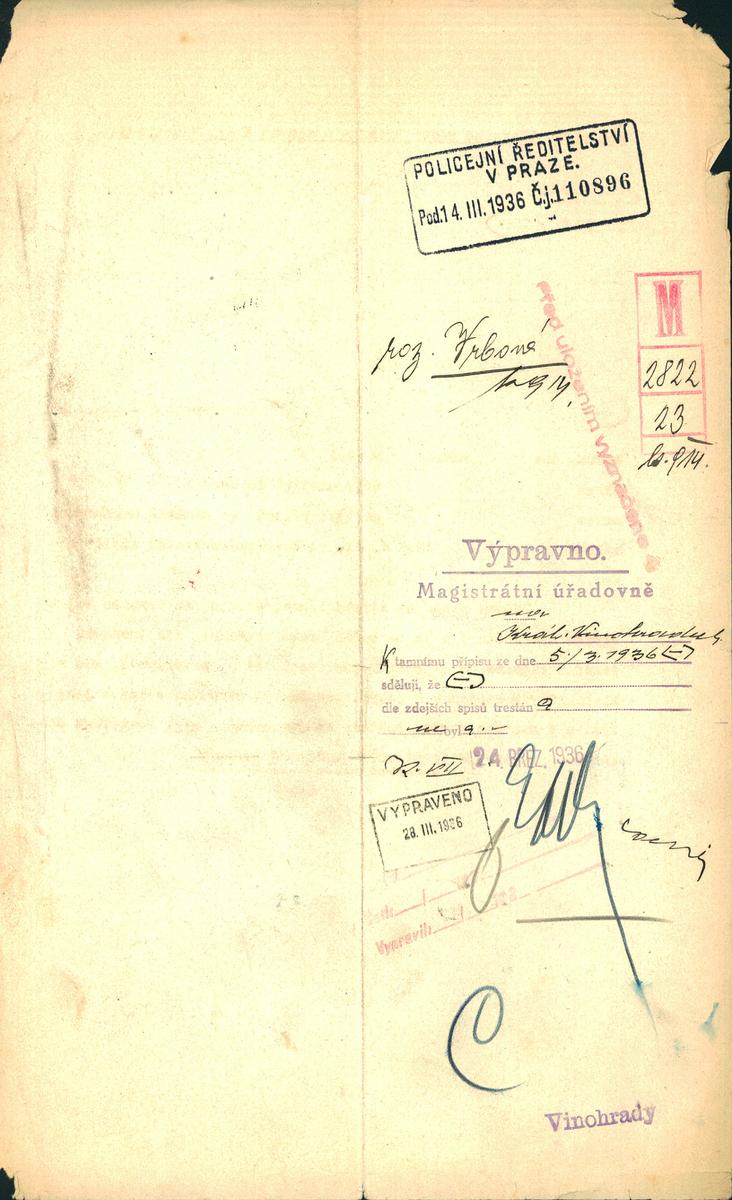 POLICEJNÍ ŘEDITELSTVÍ
V PRAZE.
Pod.14. III. 1936 Č.j.110896
M
2822
23
roz. Vrbová
Před uložením vyznačené
Výpravno.
Magistrátní úřadovně
Král. Vinohrady
K tamnímu přípisu ze dne 5./3. 1936
sděluji, že
dle zdejších spisů trestán a
nebyl a.
K. VII 24. BŘEZ. 1936
VYPRAVENO
28. III. 1936
Vypravil:
C
Vinohrady